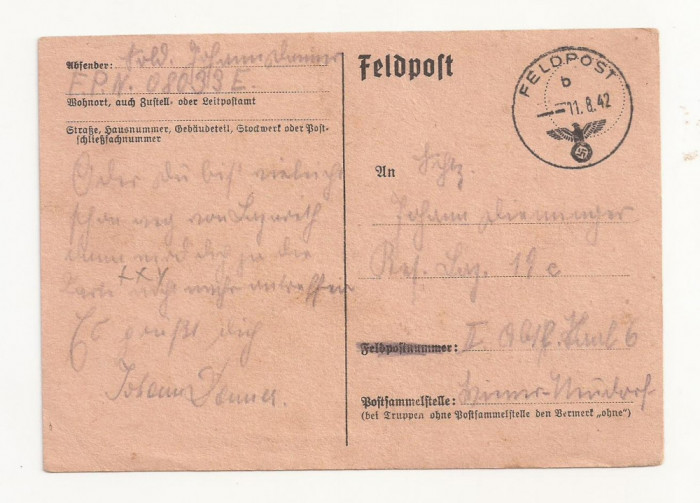 Absender: Sold. Johann Danner
F.P.N. 08033 E.
Wohnort, auch Zustell- oder Leitpostamt
Straße, Hausnummer, Gebäudeteil, Stockwerk oder Post-
schließfachnummer
Oder du bist vieleicht
schon weg von Lazareth
dann wird dich ja die
Karte nicht mehr antreffen
Es grüßt dich
Johann Danner.
Feldpost
FELDPOST
b
11.8.42
An Schtz.
Johann
Res. Laz. 19 c
Feldpostnummer: II
Postsammelstelle: Wiener-Neudorf
(bei Truppen ohne Postsammelstelle den Vermerk „ohne“)